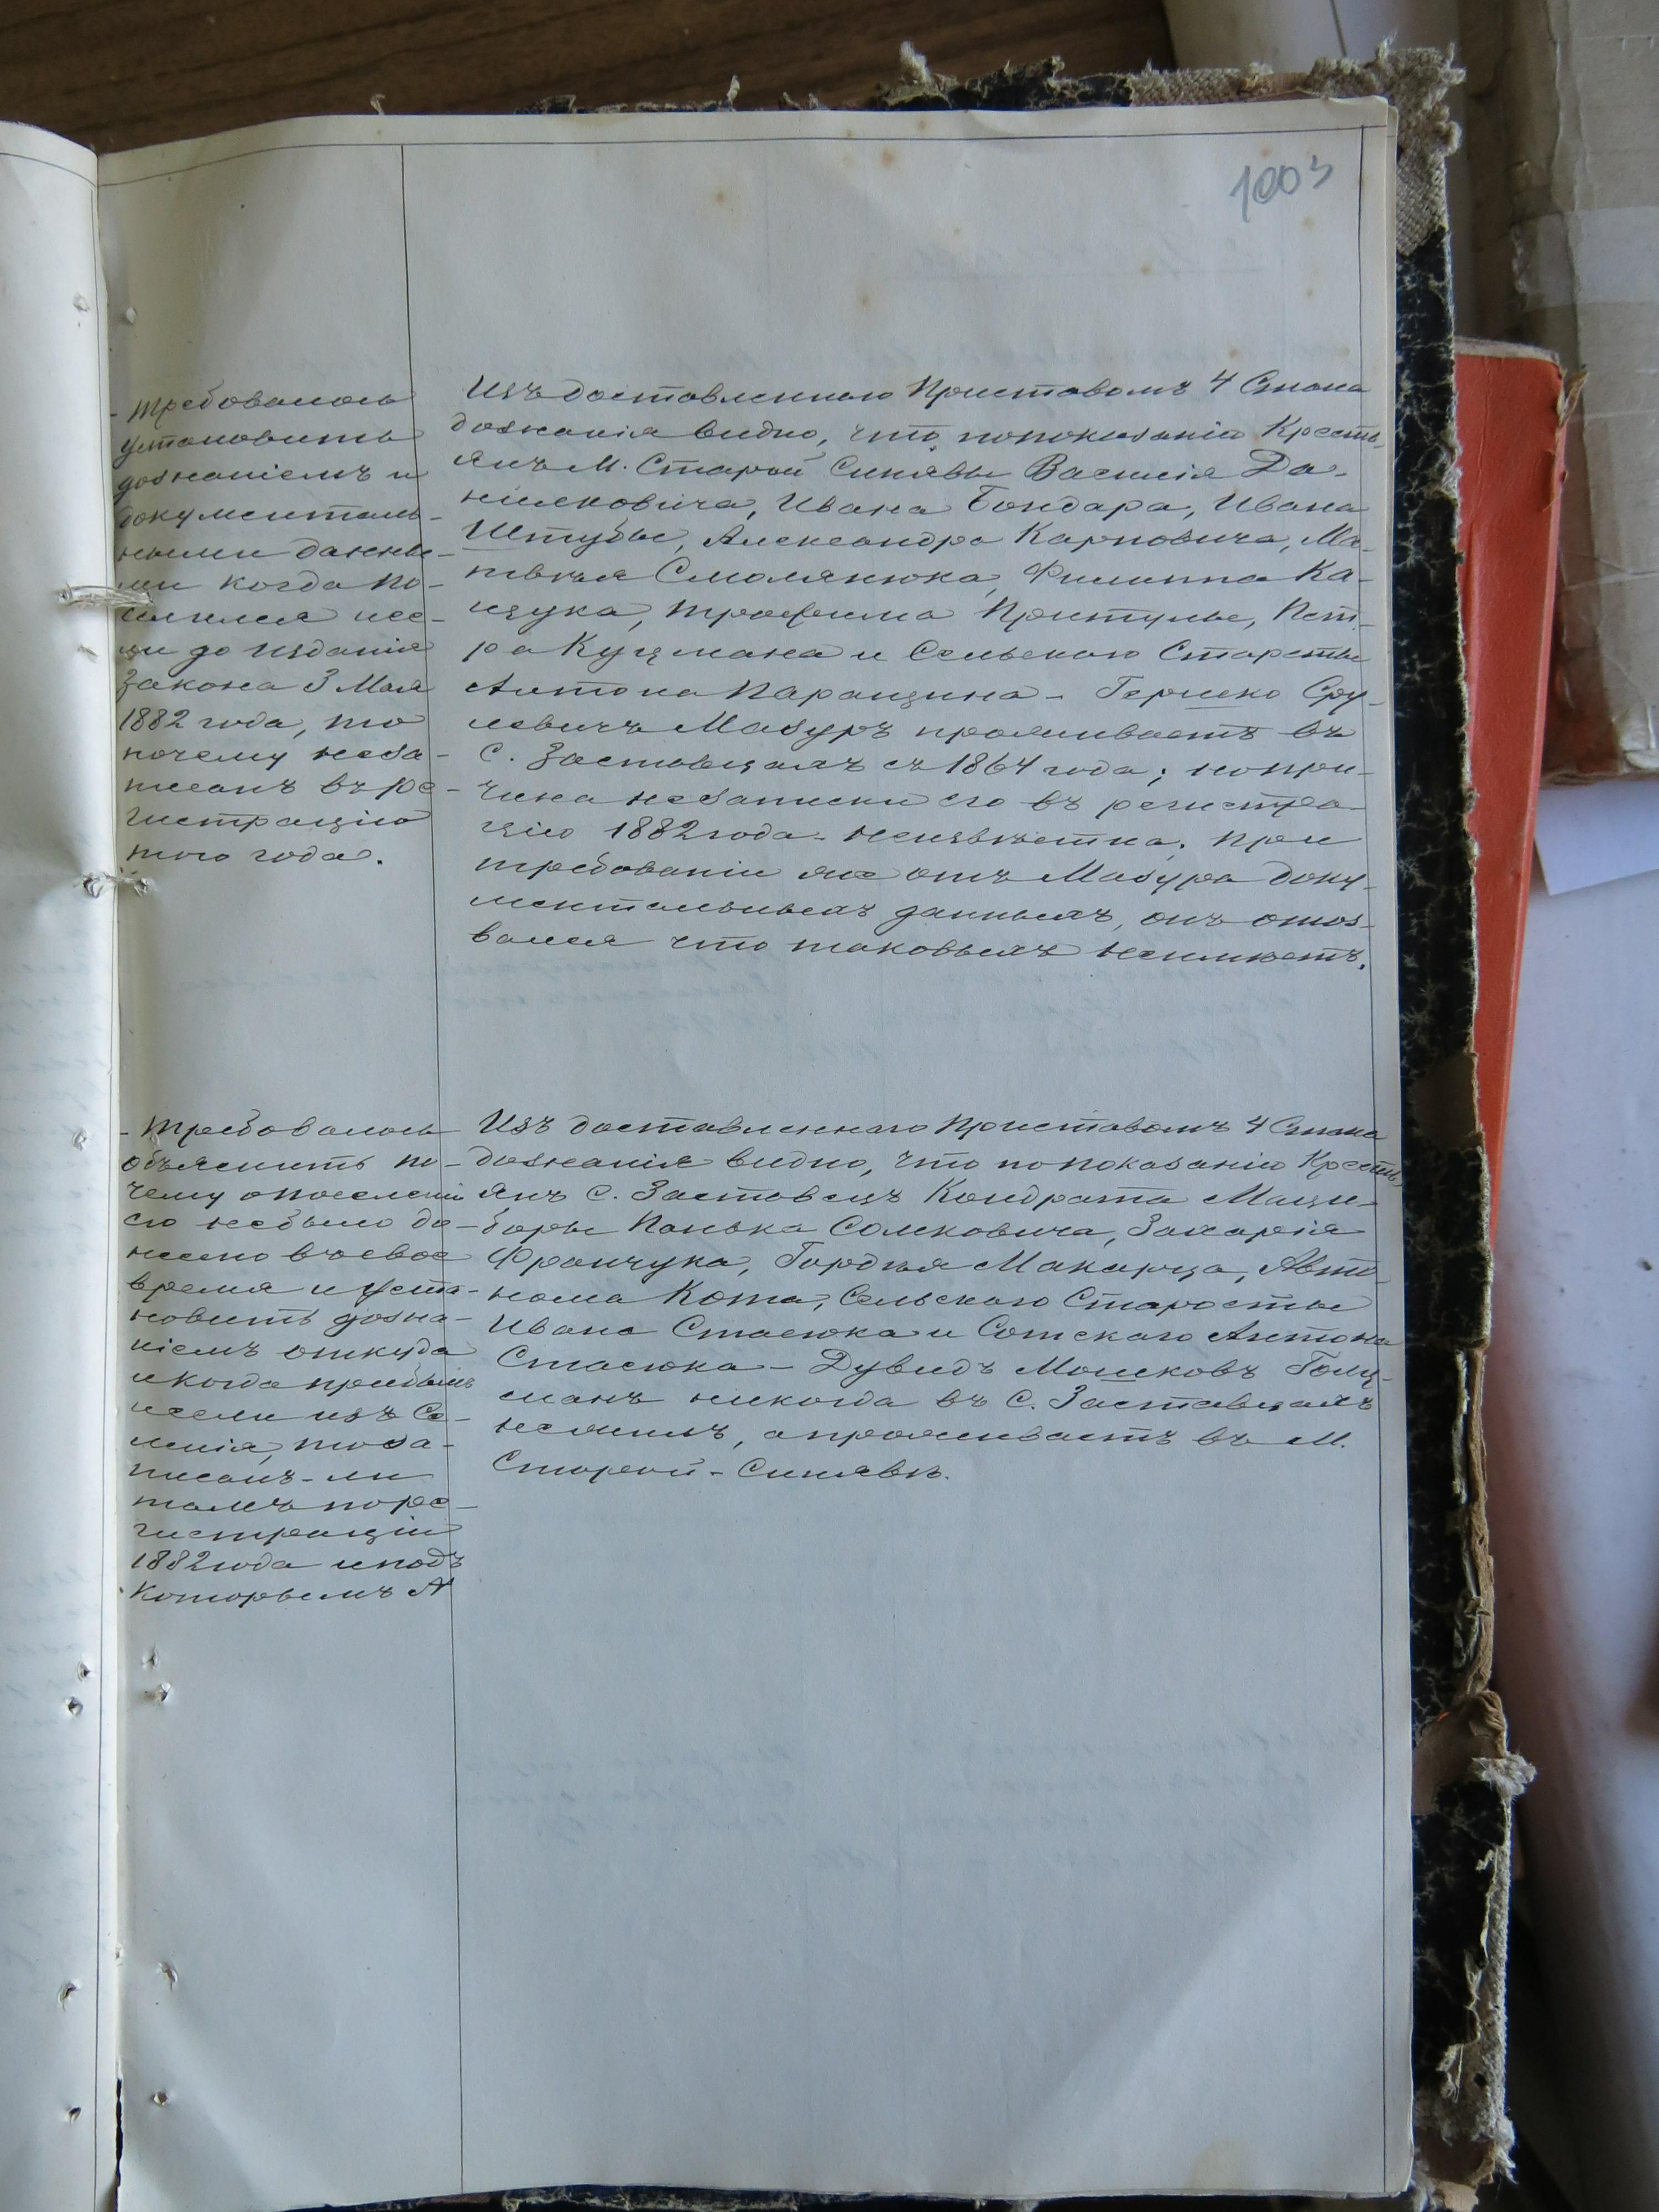 1003
- Требовалось
установить
дознаніемъ и
документаль-
ными данны-
ми когда по-
селился исе-
ли до изданія
Закона 3 Мая
1882 года, то
почему неза-
писанъ въ ре-
гистрацію
того года.
Изъ доставленнаго Приставомъ 4 Стана
дознанія видно, что попоказанію Кресть-
янъ М. Старой Синявы Василія Да-
нилковича, Ивана Бондара, Ивана
Штубы, Александра Карповича, Ма-
твѣя Смолянюка, Филиппа Ка-
цука, Трофима Притулы, Пет-
ра Куцмана и Сельскаго Старосты
Антона Паращина - Гершко Сру-
левичъ Мазуръ проживаетъ въ
С. Заставцахъ съ 1864 года; нопри-
чина незаписки его въ регистра-
цію 1882 года - неизвѣстна; при
требованіи же отъ Мазура доку-
ментальныхъ данныхъ, онъ отоз-
вался что таковыхъ неимѣетъ.
- Требовалось
объяснить по-
чему опоселеніи
его небыло до-
несено въ свое
время и уста-
новить дозна-
ніемъ откуда
и когда прибылъ
иесли изъ Се-
ленія, тоза-
писанъ-ли
тамъ порес-
гистраціи
1882 года иподъ
которымъ №
Изъ доставленнаго Приставомъ 4 Стана
дознанія видно, что попоказанію Кресть-
янъ С. Заставецъ Кондрата Маци-
боры Панька Солковича, Захарія
Франчука, Гордѣя Макарца, Авто-
нома Кота, Сельскаго Старосты
Ивана Стасюка и Сотскаго Антона
Стасюка - Дувидъ Мошковъ Голц-
манъ никогда въ С. Заставцахъ
нежилъ, апроживаетъ въ М.
Старой-Синявѣ.